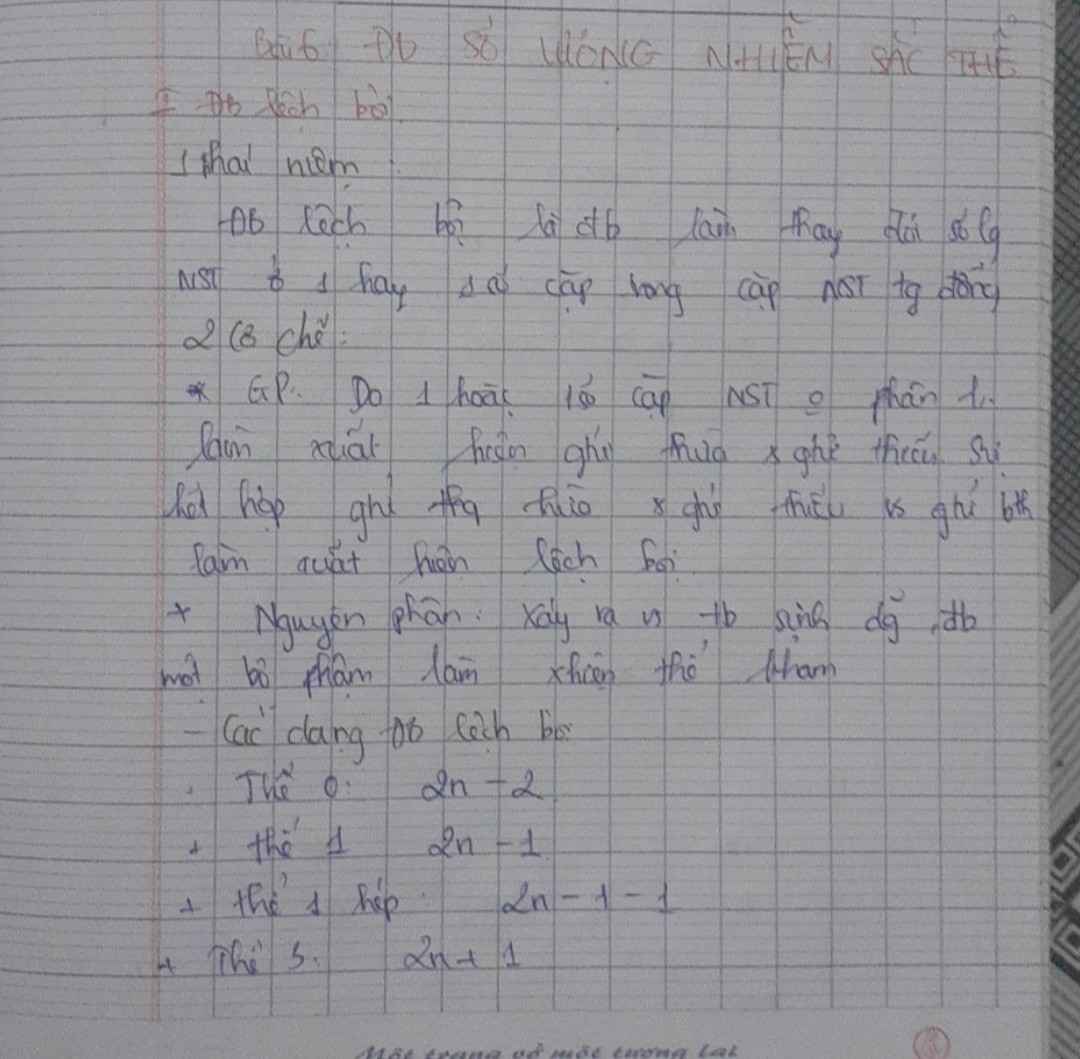 Bài 6 ĐB SỐ LƯỢNG NHIỄM SẮC THỂ
I ĐB lệch bội
1 khai niệm
ĐB lệch bội là đb làm thay đổi số lg
NST ở 1 hay 1 số cặp trong cặp NST tg đồng
2 Cơ chế:
* GP. Do 1 hoặc 1 số cặp NST o phân li.
làm xuất hiện ghtử thừa x ghtử thiếu Sự
kết hợp gtử thừa x gtử thiếu vs gtử bth
làm xuất hiện lệch bội
+ Nguyên phân: xảy ra vs tb sinh dg, tb
một bộ phậm làm xhiện thể khảm
- Các dạng ĐB lệch bội
. Thể 0: 2n - 2
+ thể 1 2n - 1
+ thể 1 kép 2n - 1 - 1
+ Thể 3. 2n + 1
Mỗi trang vở một tương lai